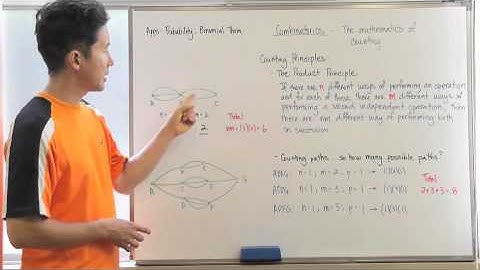 Apps: Probability, Binomial Thm
Combinatorics - The mathematics of
counting
Counting Principles
- The Product Principle
If there are n different ways of performing an operation
and for each of these there are m different ways of
performing a second independent operation, then
there are nm different ways of performing both
in succession
A
B
C
m = 2
2
Total
- Counting paths so how many possible paths?
n=1, m=2, p=1
n=1, m=3, p=1
APFG n=1, m=3, p=1
Total
2+3+3=8